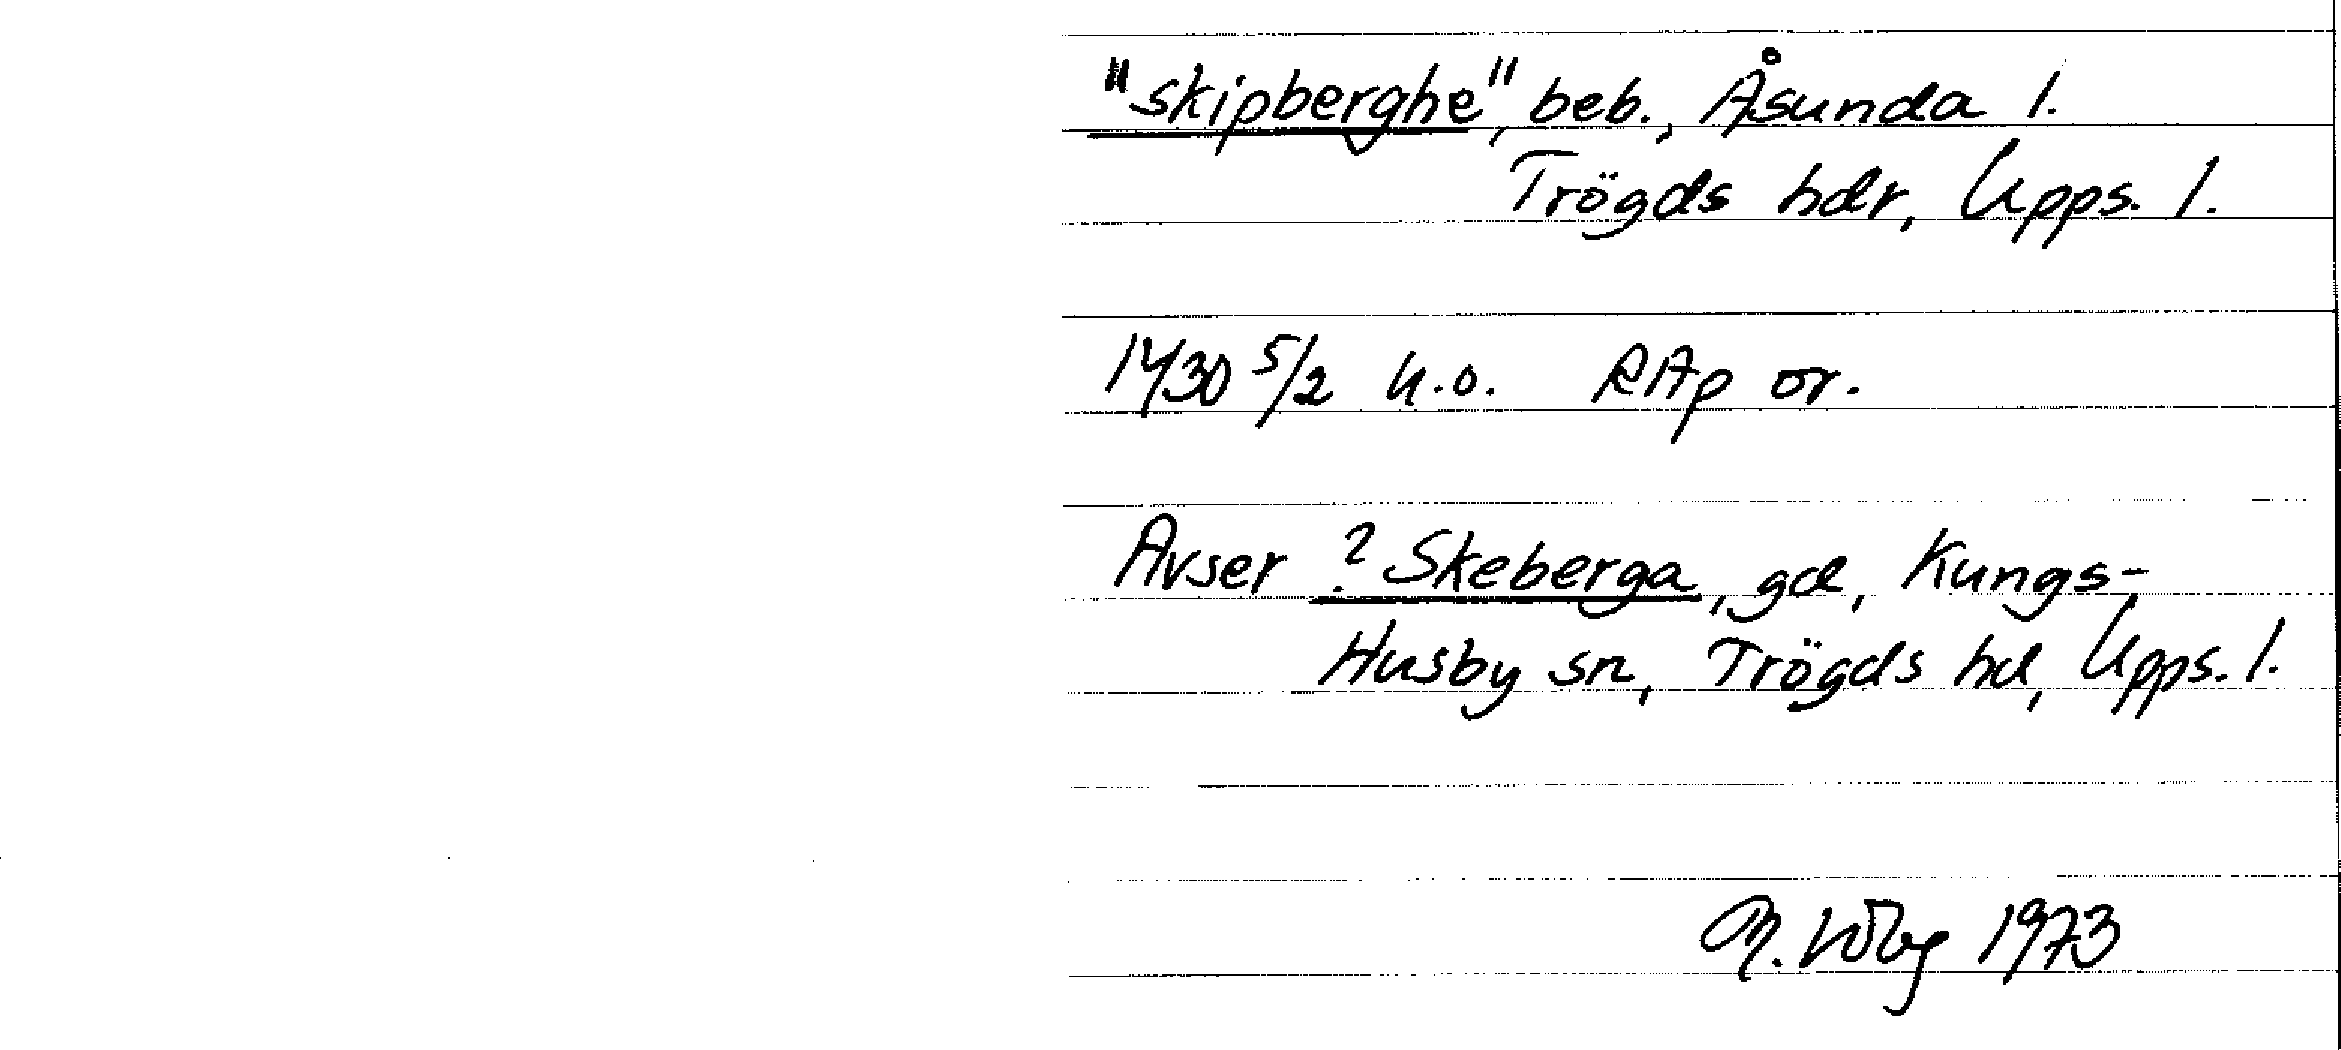 "skipberghe", beb., Åsunda l.
Trögds hdr, Upps. l.
1430 5/2 u.o. RAp or.
Avser ? Skeberga, gd, Kungs-
Husby sn, Trögds hd, Upps. l.
1973